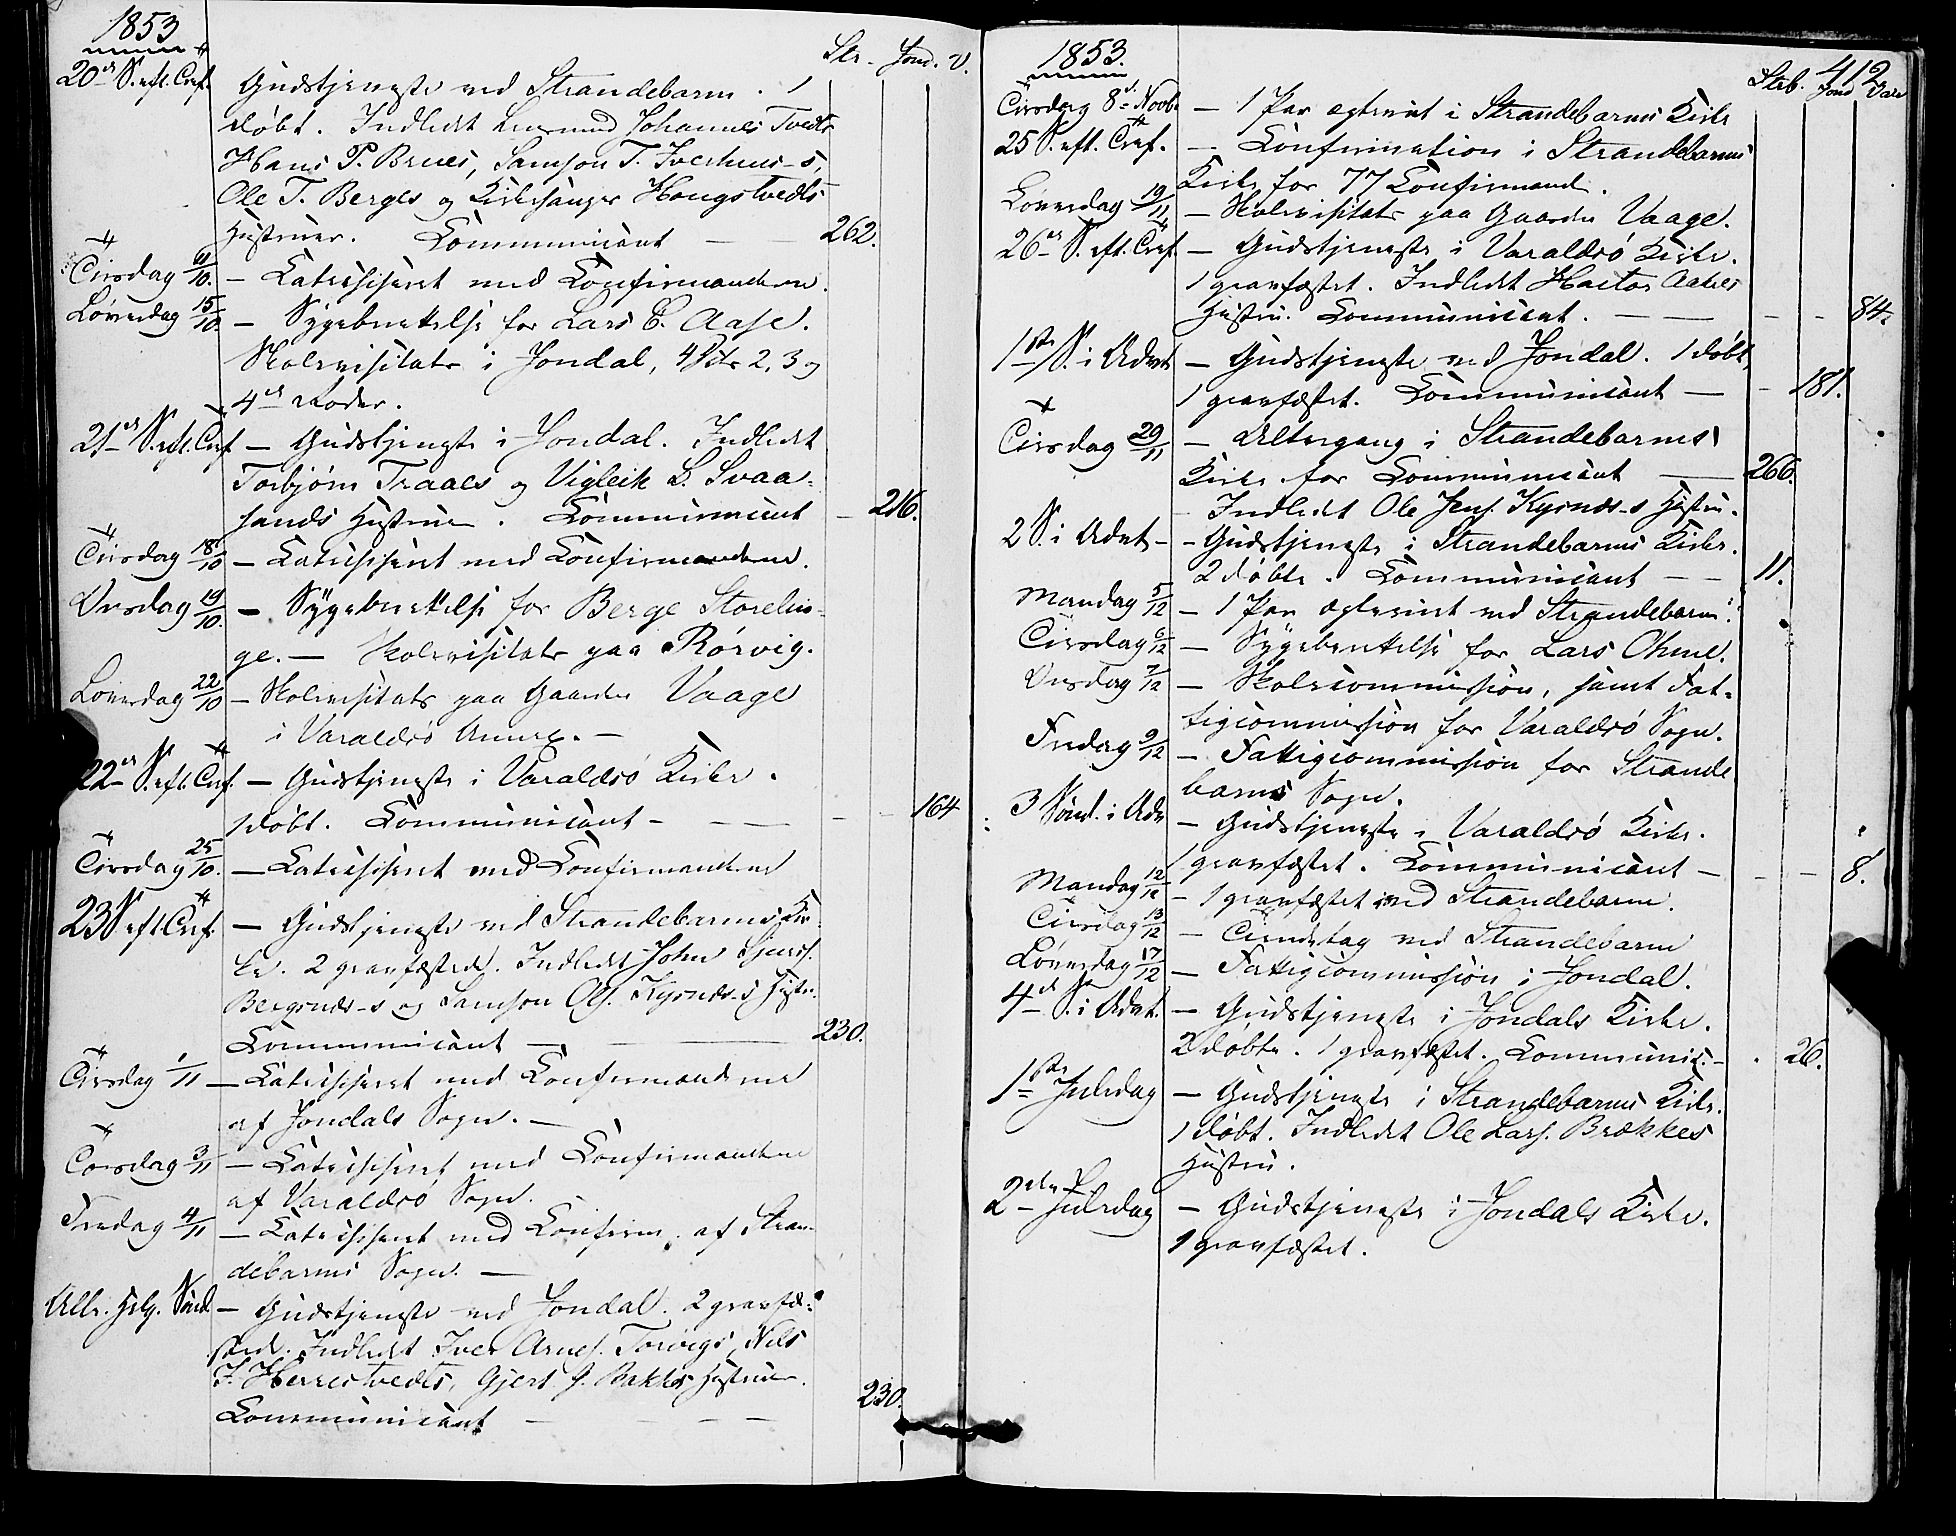 1853
Str. Jond. V.
20de S. eft. Tref. Gudstjeneste ved Strandebarm. 1
døbt. Indledt Lensmand Johannes Tvedts
Hans P. Brues, Samson T. Iverhuus-s,
Ole T. Berges og Kirkesanger Hougstvedts
Hustruer. Communicant — 262.
Tirsdag 11/10. — Catechiseret med Confirmanderne.
Løverdag 15/10. — Sygeberettelse for Lars C. Aase.
Skolevisitats i Jondal, 1ste 2, 3 og
4de Roder.
21de S. eft. Tref — Gudstjeneste i Jondal. Indledt
Torbjørn Traaes og Vigleik L. Svaa-
sands Hustruer. Communicant — 216.
Tirsdag 18/10 — Catechiseret med Confirmanderne.
Onsdag 19/10. — Sygeberettelse for Berge Storelin-
ge. — Skolevisitats paa Rørvig.
Løverdag 22/10 — Skolevisitats paa Gaarden Vaage
i Varaldsø Annex. —
22de S. eft. Tref. — Gudstjeneste i Varaldsø Kirke.
1 døbt. Communicant — 164
Tirsdag 25/10. — Catechiseret med Confirmanderne
23 S eft. Tref. — Gudstjeneste ved Strandebarms Kir-
ke. 2 gravfæstede. Indledt John Sjurs.
Bergsnæs-s og Samson Ols. Kysnæs-s Hustr.
Communicant — 230.
Tirsdag 1/11 — Catechiseret med Confirmanderne
af Jondals Sogn. —
Torsdag 3/11 — Catechiseret med Confirmanderne
af Varaldsø Sogn.
Fredag 4/11 — Catechiseret med Confirm. af Stran-
debarms Sogn. —
Alle. Helg. Sønd. — Gudstjeneste ved Jondal. 2 gravfæ-
stede. Indledt Iver Arnes. Torvigs, Nils
J. Herrestvedts, Gjert J. Bakkes Hustruer.
Communicant — 230.
1853.
412
Strb. Jond Vara
Tirsdag 8de Novbr — 1 Par ægteviet i Strandebarms Kirke
25 S. eft. Tref. — Confirmation i Strandebarms
Kirke for 77 Confirmand.
Løverdag 19/11 — Skolevisitats paa Gaarden Vaage.
26de S. eft. Tref. — Gudstjeneste i Varaldsø Kirke.
1 gravfæstet. Indledt Hactor Aakres
Hustru. Communicant. — 84.
1ste S. i Advt — Gudstjeneste ved Jondal. 1 døbt,
1 gravfæstet. Communicant — 181.
Tirsdag 29/11 — Altergang i Strandebarms
Kirke for Communicant — 266.
Indledt Ole Jens. Kysnæs-s Hustru.
2 S. i Advt — Gudstjeneste i Strandebarms Kirke.
2 døbte. Communicant — 11.
Mandag 5/12 — 1 Par ægteviet ved Strandebarm.
Tirsdag 6/12 — Sygeberettelse for Lars Ohme.
Onsdag 7/12 — Skolecommission, samt Fat-
tigcommission for Varaldsø Sogn.
Fredag 9/12 — Fattigcommission for Strande
barms Sogn.
3 Sønd. i Adv — Gudstjeneste i Varaldsø Kirke.
1 gravfæstet. Communicant — 8.
Mandag 12/12 — 1 gravfæstet ved Strandebarm.
Tirsdag 13/12 — Tiendetag ved Strandebarm
Løverdag 17/12 — Fattigcommission i Jondal.
4de S. i Advt. — Gudstjeneste i Jondals Kirke.
2 døbte. 1 gravfæstet. Communic. — 26.
1ste Juledag — Gudstjeneste i Strandebarms Kirke.
1 døbt. Indledt Ole Lars. Brækkes
Hustru.
2den Juledag — Gudstjeneste i Jondals Kirke.
1 gravfæstet.